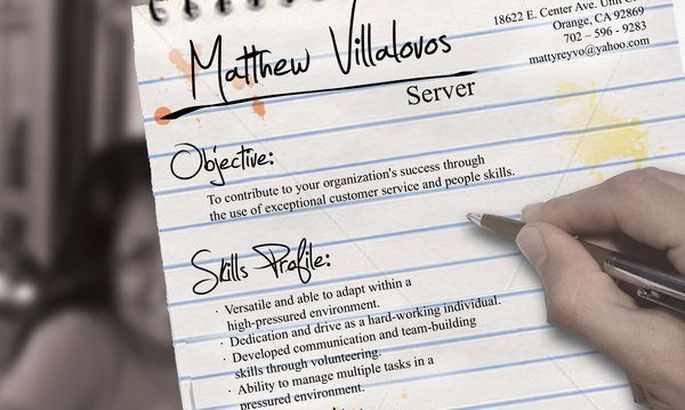 Matthew Villalovos
18622 E. Center Ave.
Orange, CA 92869
702 – 596 - 9283
mattyreyvo@yahoo.com
Server
Objective:
To contribute to your organization's success through
the use of exceptional customer service and people skills.
Skills Profile:
· Versatile and able to adapt within a
high-pressured environment.
· Dedication and drive as a hard-working individual.
· Developed communication and team-building
skills through volunteering.
· Ability to manage multiple tasks in a
pressured environment.